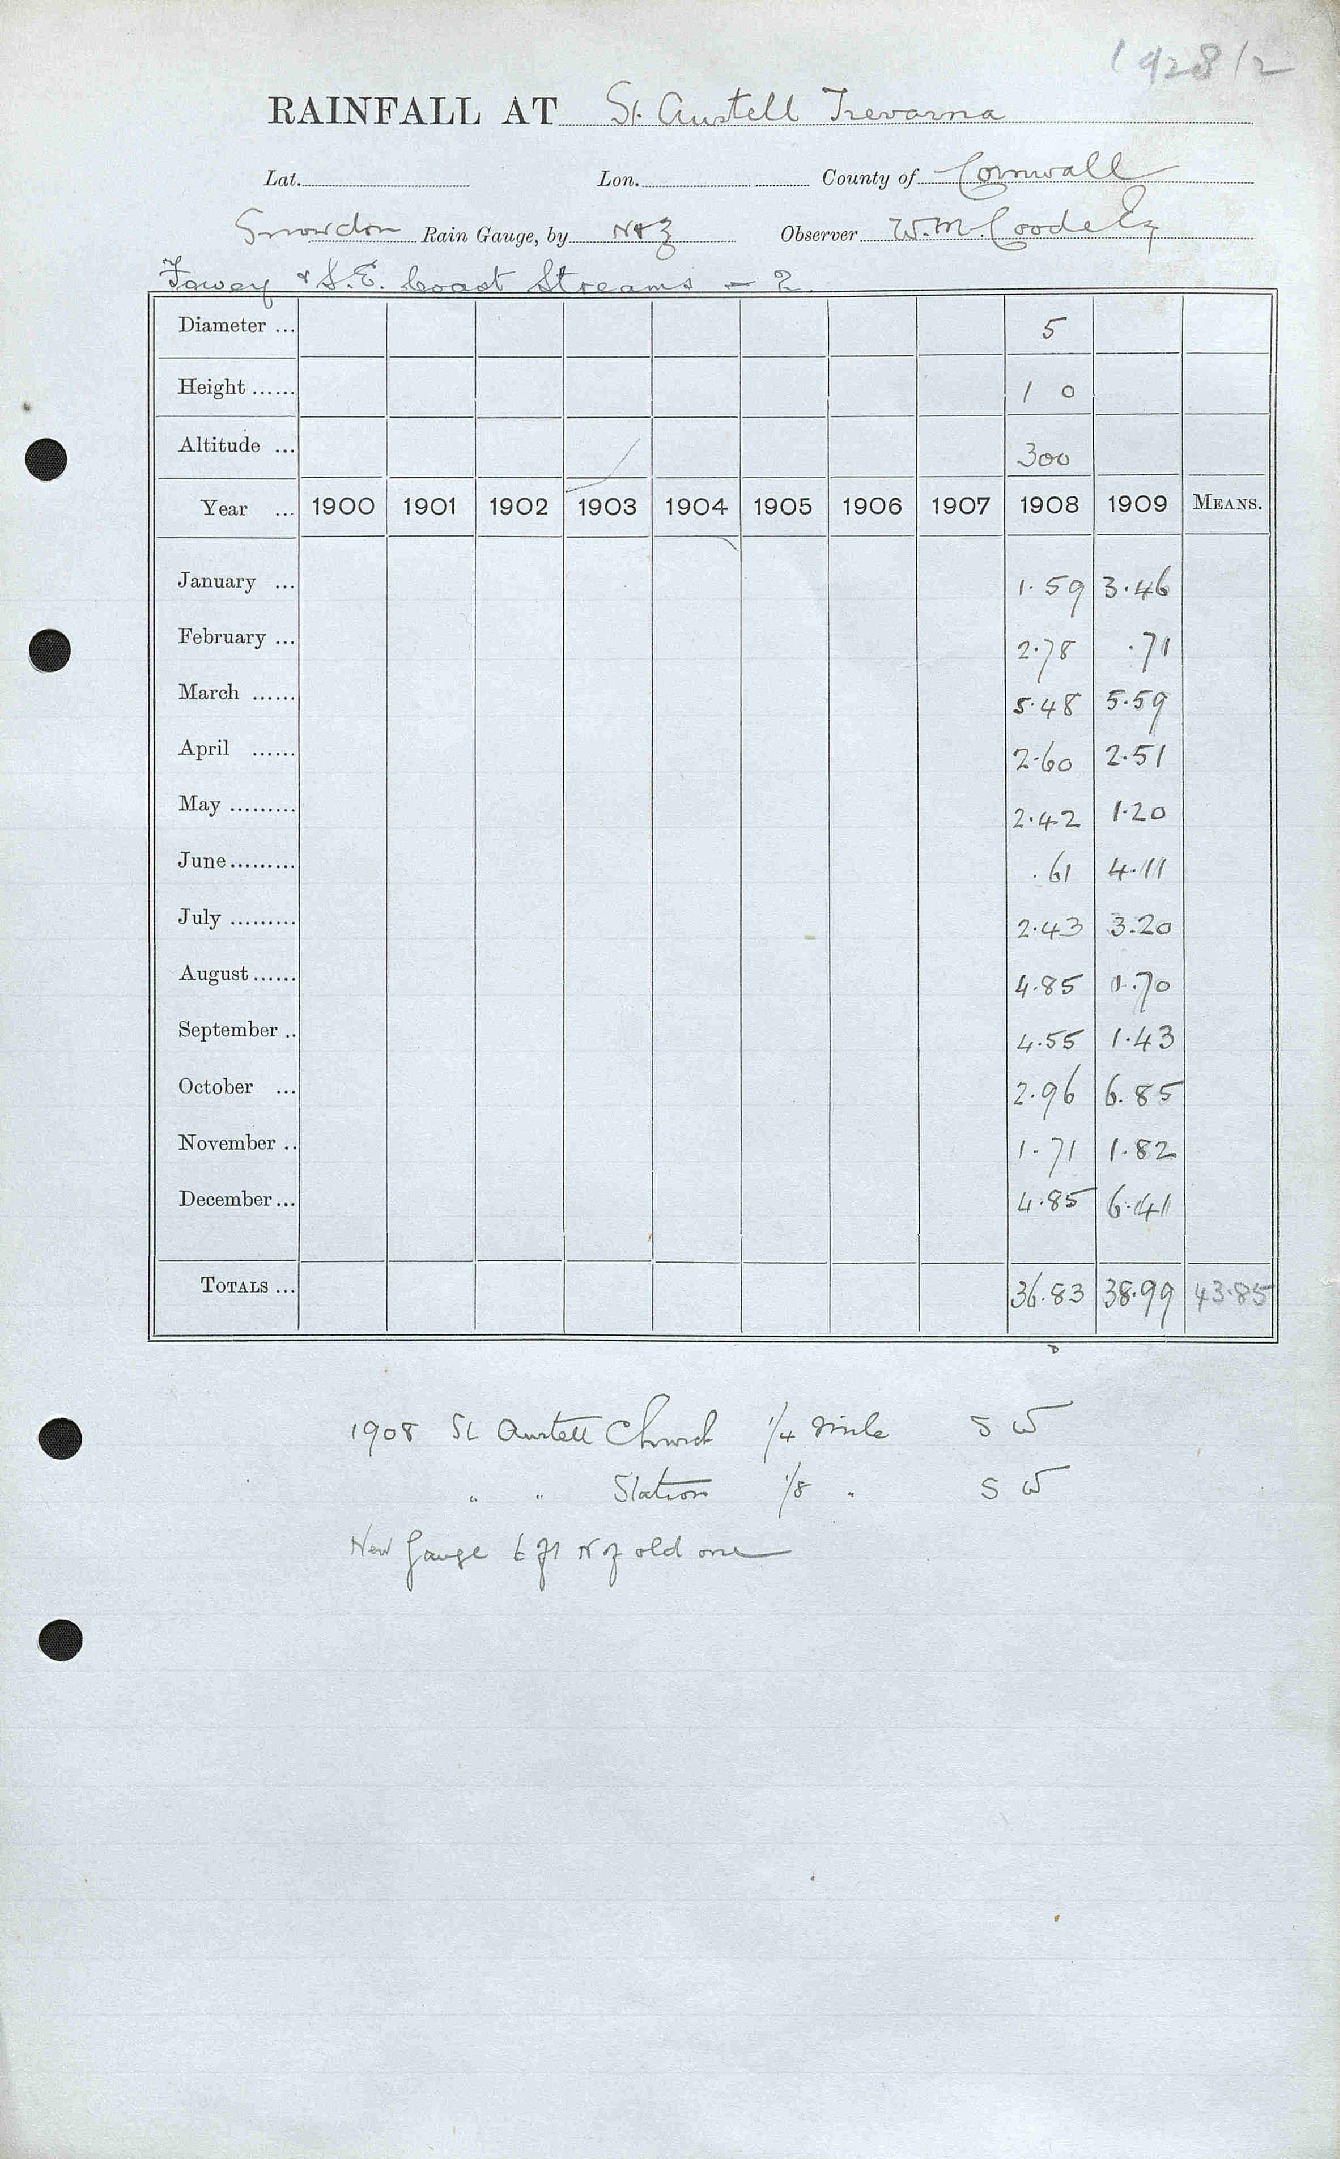 1928/2
RAINFALL AT St. Austell Trevarna
Lat. Lon. County of Cornwall
Snowdon Rain Gauge, by N & Z Observer W. M. Coode Esq
Fowey & S.E. Coast Streams - 2.
Diameter ... 5
Height ...... 1 0
Altitude ... 300
Year ... 1900 1901 1902 1903 1904 1905 1906 1907 1908 1909 MEANS.
January ... 1.59 3.46
February ... 2.78 .71
March ...... 5.48 5.59
April ...... 2.60 2.51
May ......... 2.42 1.20
June ......... .61 4.11
July ......... 2.43 3.20
August ...... 4.85 1.70
September .. 4.55 1.43
October ... 2.96 6.85
November .. 1.71 1.82
December ... 4.85 6.41
TOTALS ... 36.83 38.99 43.85
1908 St Austell Church 1/4 mile S W
" " Station 1/8 " S W
New Gauge ft N of old one